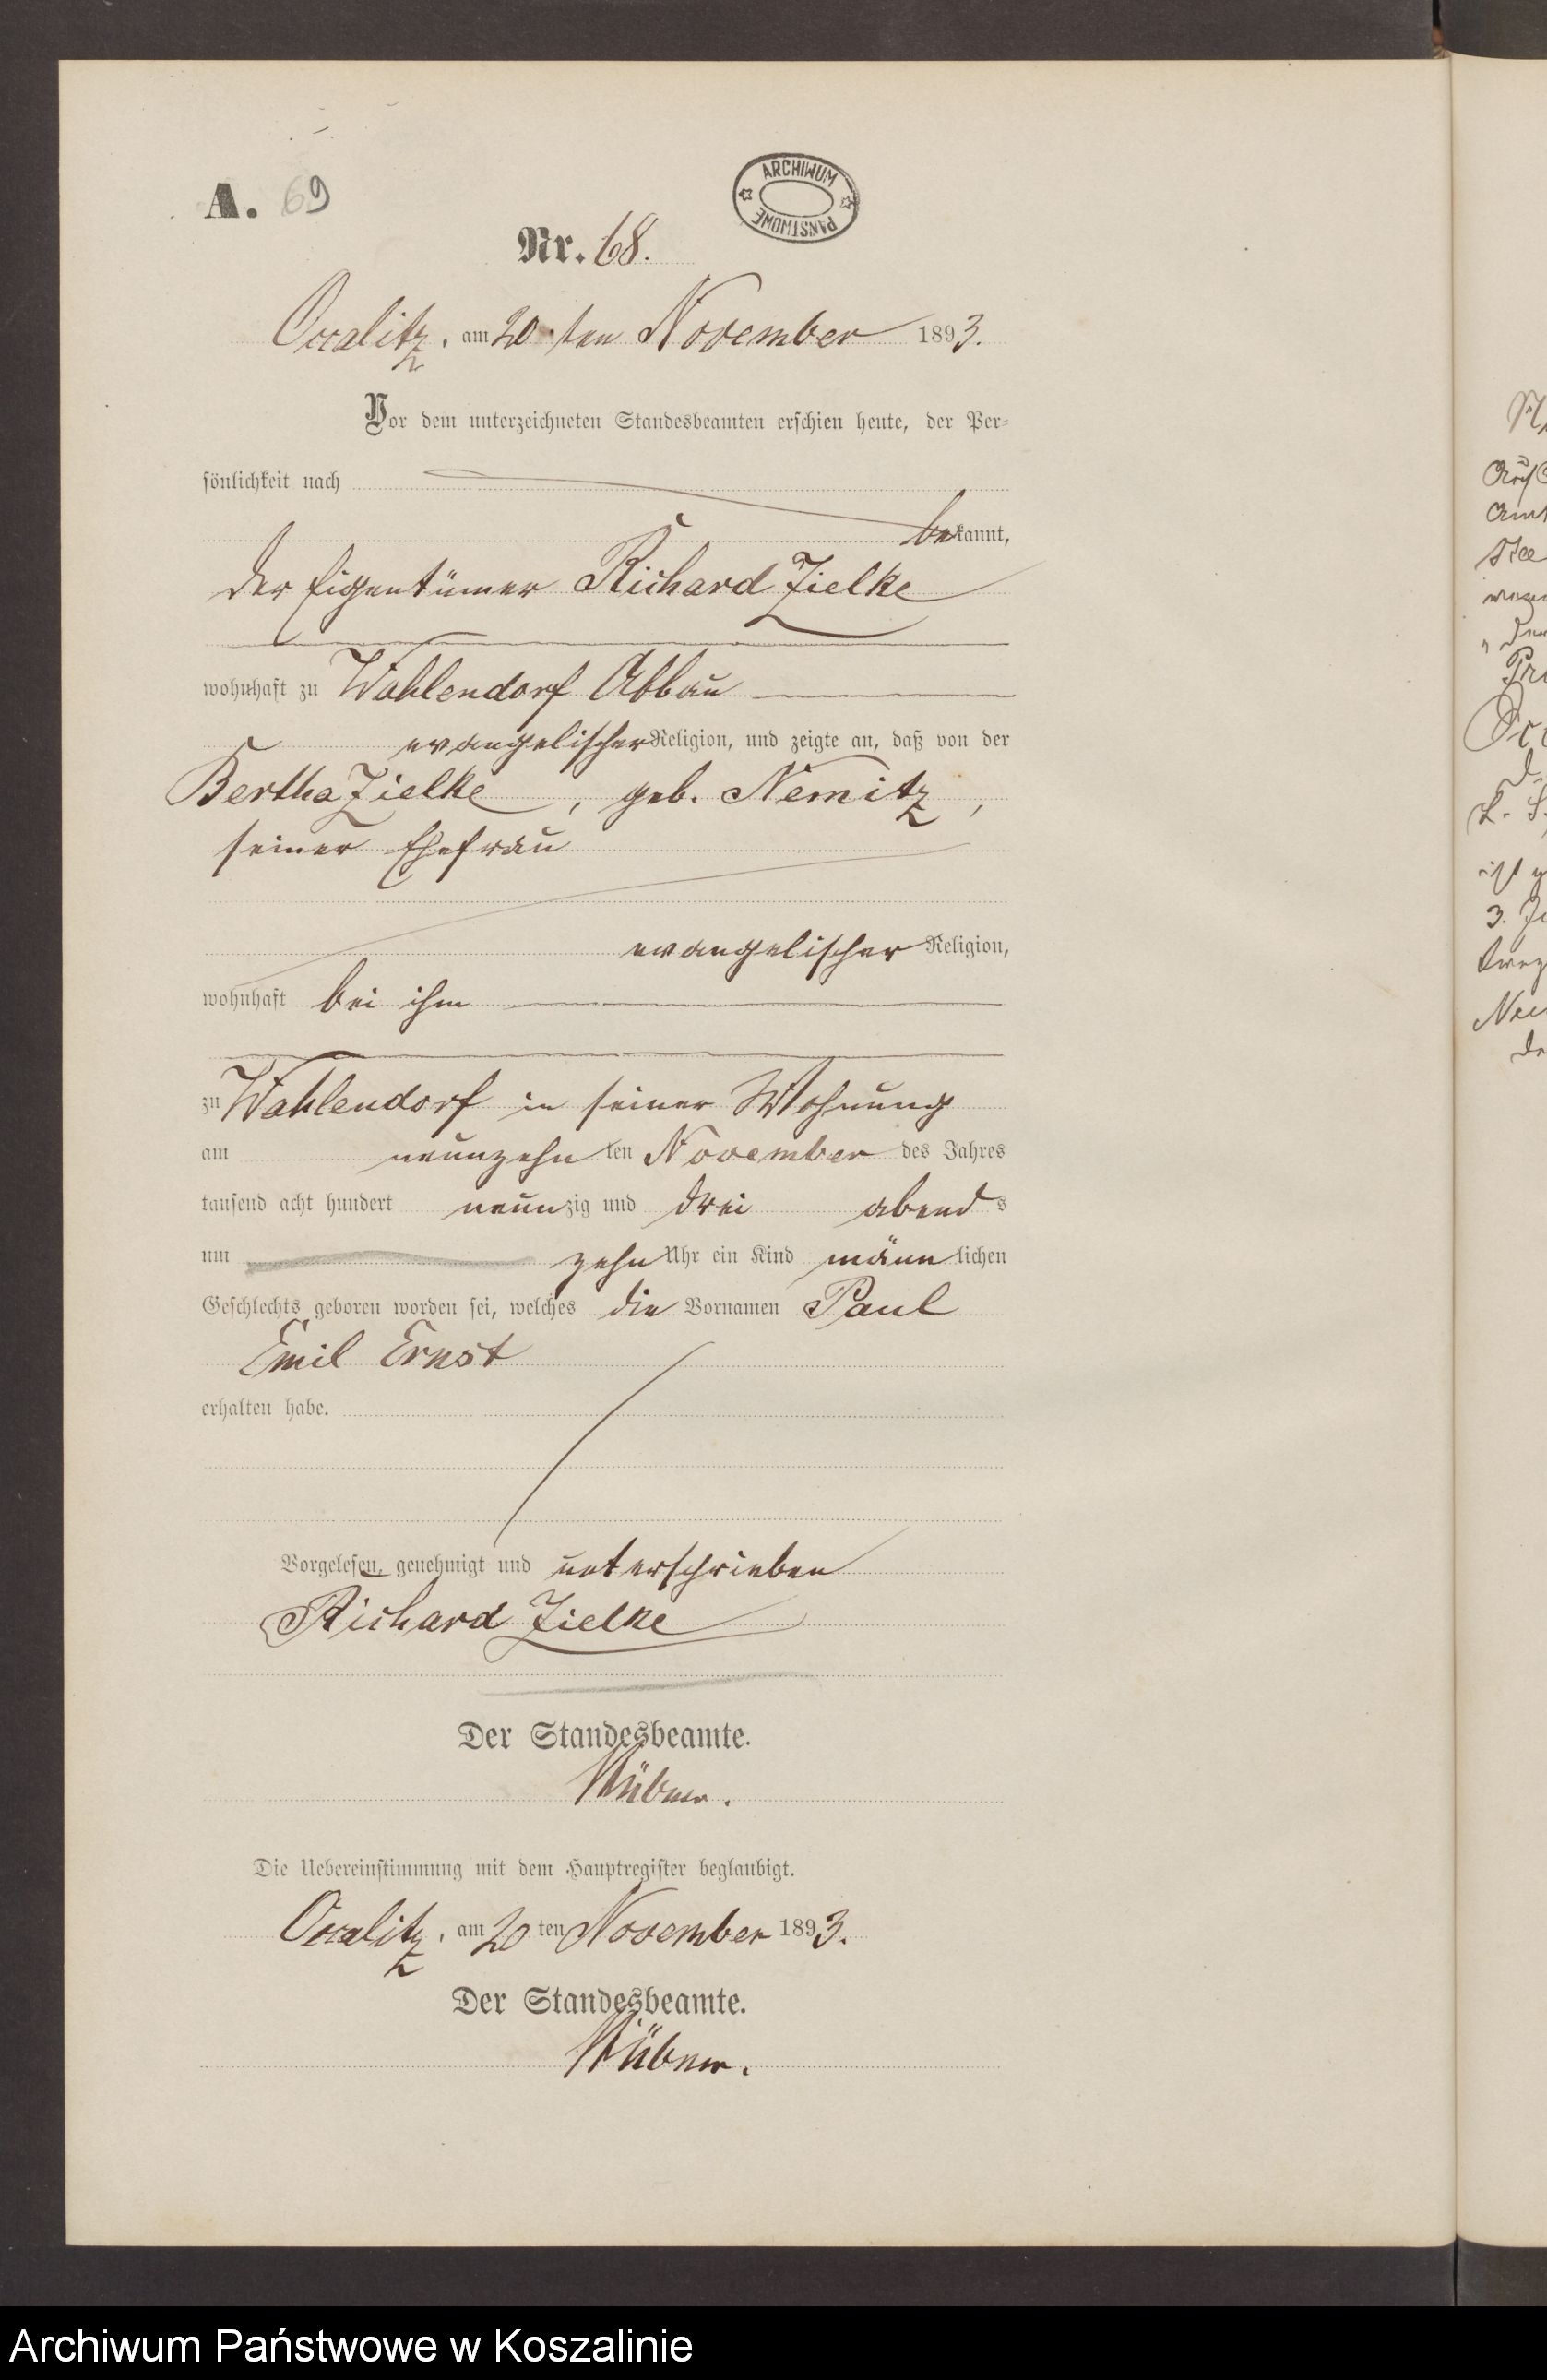 ARCHIWUM PAŃSTWOWE
A. 69
Nr. 68.
Occalitz, am 20 ten November 1893.
Vor dem unterzeichneten Standesbeamten erschien heute, der Per-
sönlichkeit nach
bekannt,
der Eigentümer Richard Zielke
wohnhaft zu Wahlendorf Abbau
evangelischer Religion, und zeigte an, daß von der
Bertha Zielke, geb. Nemitz,
seiner Ehefrau
evangelischer Religion,
wohnhaft bei ihm
zu Wahlendorf in seiner Wohnung
am neunzehn ten November des Jahres
tausend acht hundert neunzig und drei abends
um zehn Uhr ein Kind männlichen
Geschlechts geboren worden sei, welches die Vornamen Paul
Emil Ernst
erhalten habe.
Vorgelesen, genehmigt und unterschrieben
Richard Zielke
Der Standesbeamte.
Die Uebereinstimmung mit dem Hauptregister beglaubigt.
Occalitz, am 20 ten November 1893.
Der Standesbeamte.
Archiwum Państwowe w Koszalinie